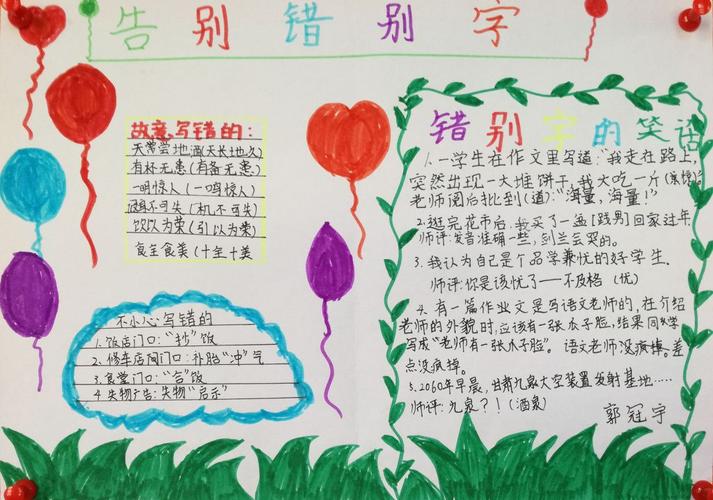 告别错别字
故意写错的：
天常尝地酒(天长地久)
有杯无患(有备无患)
一明惊人(一鸣惊人)
不可失(机不可失)
饮以为荣(引以为荣)
食全食美(十全十美
不小心写错的
1.饭店门口："抄"饭
2.修车店门口：补胎"冲"气
3.食堂门口："合"饭
4.失物广告：失物"启示"
错别字的笑话
1.一学生在作文里写道："我走在路上，
突然出现一大堆饼干，我大吃一斤(惊)
老师阅后批到(道)："海量，海量！"
2.逛完花市后，我买了一盆[贱男]回家过年
师评：发音准确一些，到兰云哭的。
3.我认为自己是个品学兼忧的好学生.
师评：你是该忧了——不及格（优）
4.有一篇作业文是写语文老师的，在介绍
老师的外貌时，应该有一张瓜子脸，结果同学
写成"老师有一张爪子脸"。语文老师没疯掉。差
点没疯掉。
5.2060年早晨，甘肃九泉太空装置发射基地……
师评：九泉？！(酒泉)
郭冠宇